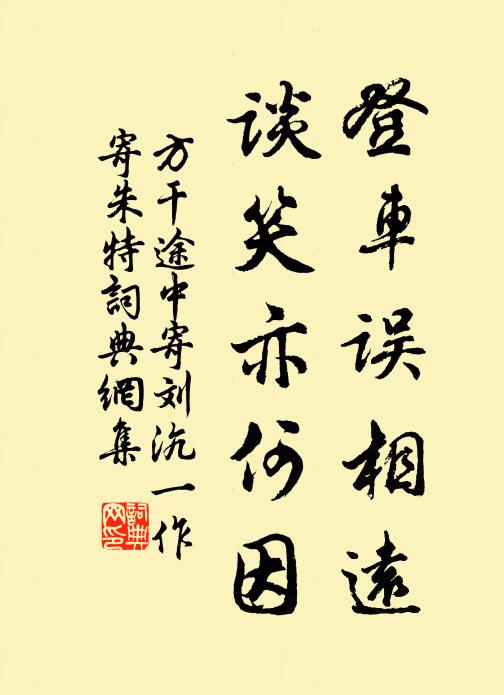 登車误相遠
谈笑亦何因
方干途中寄刘沆一作
寄朱特詞典網集
詞典网印